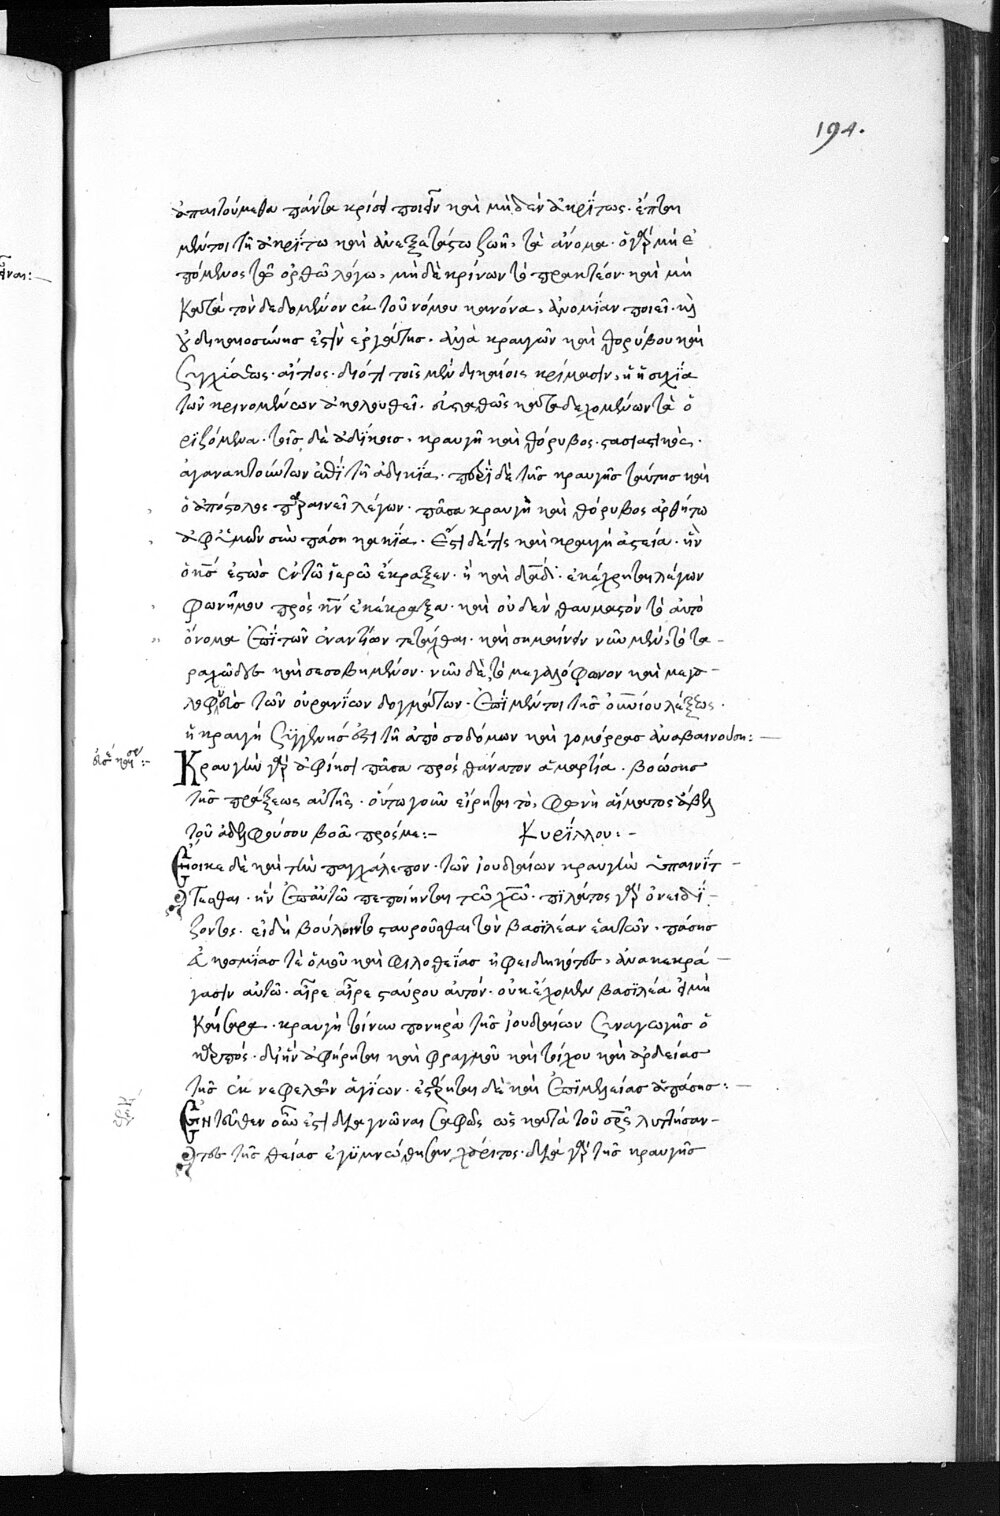 194.
ἀπαιτούμεθα πάντα κρίσει ποιεῖν καὶ μηδὲν ἀκρίτως. ἕπεται
μέντοι τῆ ἀκρίτω καὶ ἀνεξετάστω ζωῆ, τὰ ἄνομα. ὁ γὰρ μὴ ἑ
πόμενος τῶ ὀρθῶ λόγω, μηδὲ κρίνων τὸ πρακτέον. καὶ μὴ
κατὰ τὸν δεδομένον ἐκ τοῦ νόμου κανόνα, ἀνομίαν ποιεῖ. καὶ
οὐ δικαιοσύνης ἐστὶν ἐργάτης. ἀλλὰ κραυγῶν καὶ θορύβου καὶ
συγχύσεως αἴτιος. διότι τοῖς μὲν δικαίοις κρίμασιν, ἡ ἡσυχία
τῶν κρινομένων ἀκολουθεῖ. εὐπαθῶς καταδεχομένων τὰ ὁ
ριζόμενα. τοῖς δὲ ἀδίκοις. κραυγὴ καὶ θόρυβος στασιαστικὸς.
ἀγανακτούντων ἐπὶ τῆ ἀδικία. περὶ δὲ τῆς κραυγῆς ταύτης καὶ
ὁ ἀπόστολος παραινεῖ λέγων. πᾶσα κραυγὴ καὶ θόρυβος ἀρθήτω
ἀφ' ὑμῶν σὺν πάση κακία. ἔστι δέ τις καὶ κραυγὴ ἀστεία. ἣν
ὁ ις ἑστὼς ἐν τῶ ἱερῶ ἔκραξεν. ἣ καὶ δαδ. ἐκέχρητο λέγων
φωνῆ μου πρὸς κν ἐκέκραξα. καὶ οὐδὲν θαυμαστὸν τὸ αὐτὸ
ὄνομα ἐπὶ τῶν ἐναντίων τετάχθαι. καὶ σημαίνειν νῦν μὲν, τὸ τα-
ραχῶδες καὶ σεσοβημένον. νῦν δὲ, τὸ μεγαλόφωνον καὶ μεγα-
λοφυὲς τῶν οὐρανίων δογμάτων. ἐπὶ μέντοι τῆς ὁποίου λέξεως.
ἡ κραυγὴ συγγενής ἐστι τῆ ἀπὸ σοδόμων καὶ γομόρρας ἀναβαινούση:-
Κραυγὴν γὰρ ἀφίησι πᾶσα πρὸς θάνατον ἁμαρτία. βοώσης
τῆς πράξεως αὐτῆς. οὕτω γοῦν εἴρηται τὸ, φωνὴ αἵματος ἄβελ
τοῦ ἀδελφοῦ σου βοᾶ πρός με:- Κυρίλλου:-
Ἔοικε δὲ καὶ τὴν παγχάλεπον. τῶν ἰουδαίων κραυγὴν ὑπαινίτ-
τεσθαι. ἣν ἐπ' αὐτῶ πεποίηνται τῶ χω. πιλάτος γὰρ ὀνειδί-
ζοντος. εἰ δὴ βούλοιντο σταυροῦσθαι τὸν βασιλέαν ἑαυτῶν. πάσης
εὐκοσμίας τὲ ὁμοῦ καὶ φιλοθεΐας ἠφειδηκότες, ἀνακεκρά-
γασιν αὐτῶ. αἶρε αἶρε σταύρου αὐτόν. οὐκ ἔχομεν βασιλέα εἰ μὴ
Καίσαρα. κραυγὴ τοίνυν πονηρὰ τῆς ἰουδαίων συναγωγῆς ὁ
καρπός. δι' ἣν ἀφήρηται καὶ φραγμοῦ καὶ τοίχου καὶ ἀρδείας
τῆς ἐκ νεφελῶν ἁγίων. ἐστέρηται δὲ καὶ ἐπιμελείας ἁπάσης:-
Ἐντεῦθεν οὖν ἔστι διαγνῶναι σαφῶς ὡς κατὰ τοῦ σρς λυττήσαν-
τες τῆς θείας ἐγυμνώθησαν χάριτος. διὰ γὰρ τῆς κραυγῆς